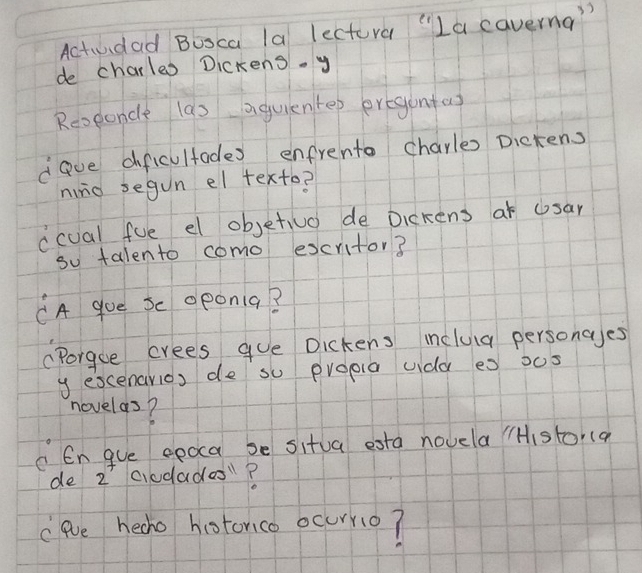 Actividad Busca la lectura "La caverna"
de charles Dickens. y
Responde las siguientes preguntas
¿Que dificultades enfrento charles Dickens
niño segun el texto?
¿cual fue el objetivo de Dickens al usar
su talento como escritor?
¿A que se oponia?
¿Porque crees que Dickens incluia personajes
y escenarios de su propia vida es sus
novelas?
¿En que epoca se situa esta novela "Historia
de 2 ciudades"?
¿Que hecho historico ocurrio?